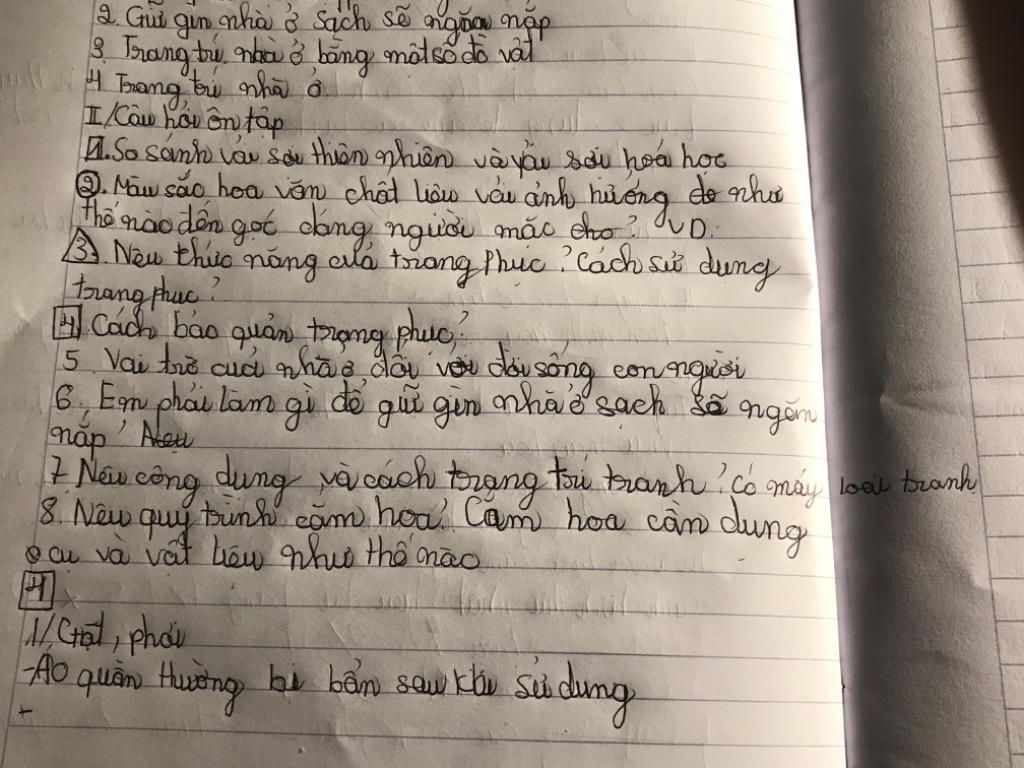 2. Giữ gìn nhà ở sạch sẽ ngăn nắp
3 Trang trí nhà ở bằng một số đồ vật
4 Trang trí nhà ở
II/Câu hỏi ôn tập
1. So sánh vải sợi thiên nhiên và vải sợi hoá học
2. Màu sắc hoa văn chất liệu vải ảnh hưởng như
thế nào đến góc dáng người mặc cho? VD.
3. Nêu thức năng của trang phục? Cách sử dụng
trang phục?
4. Cách bảo quản trang phục?
5 Vai trò của nhà ở đối với đời sống con người
6, Em phải làm gì để giữ gìn nhà ở sạch sẽ ngăn
nắp?
7 Nêu công dụng và cách trang trí tranh? Có mấy loại tranh
8. Nêu quy trình cắm hoa? Cắm hoa cần dụng
cụ và vật liệu như thế nào
4
1/ Giặt, phơi
-Áo quần thường bị bẩn sau khi sử dụng
+